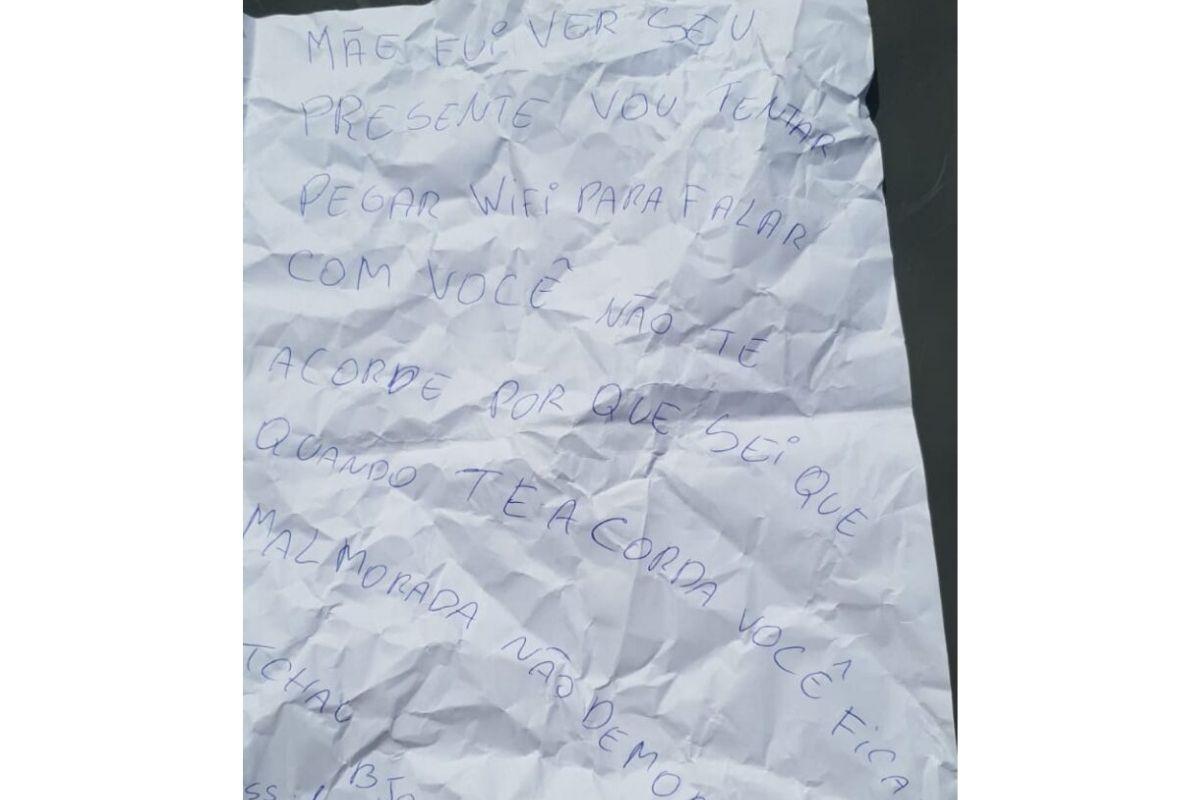 MÃE FUI VER SEU
PRESENTE VOU TENTAR
PEGAR WIFI PARA FALAR
COM VOCÊ NÃO TE
ACORDE POR QUE SEI QUE
QUANDO TE ACORDA VOCÊ FICA
MALMORADA NÃO DEMO
TCHAU
BJO